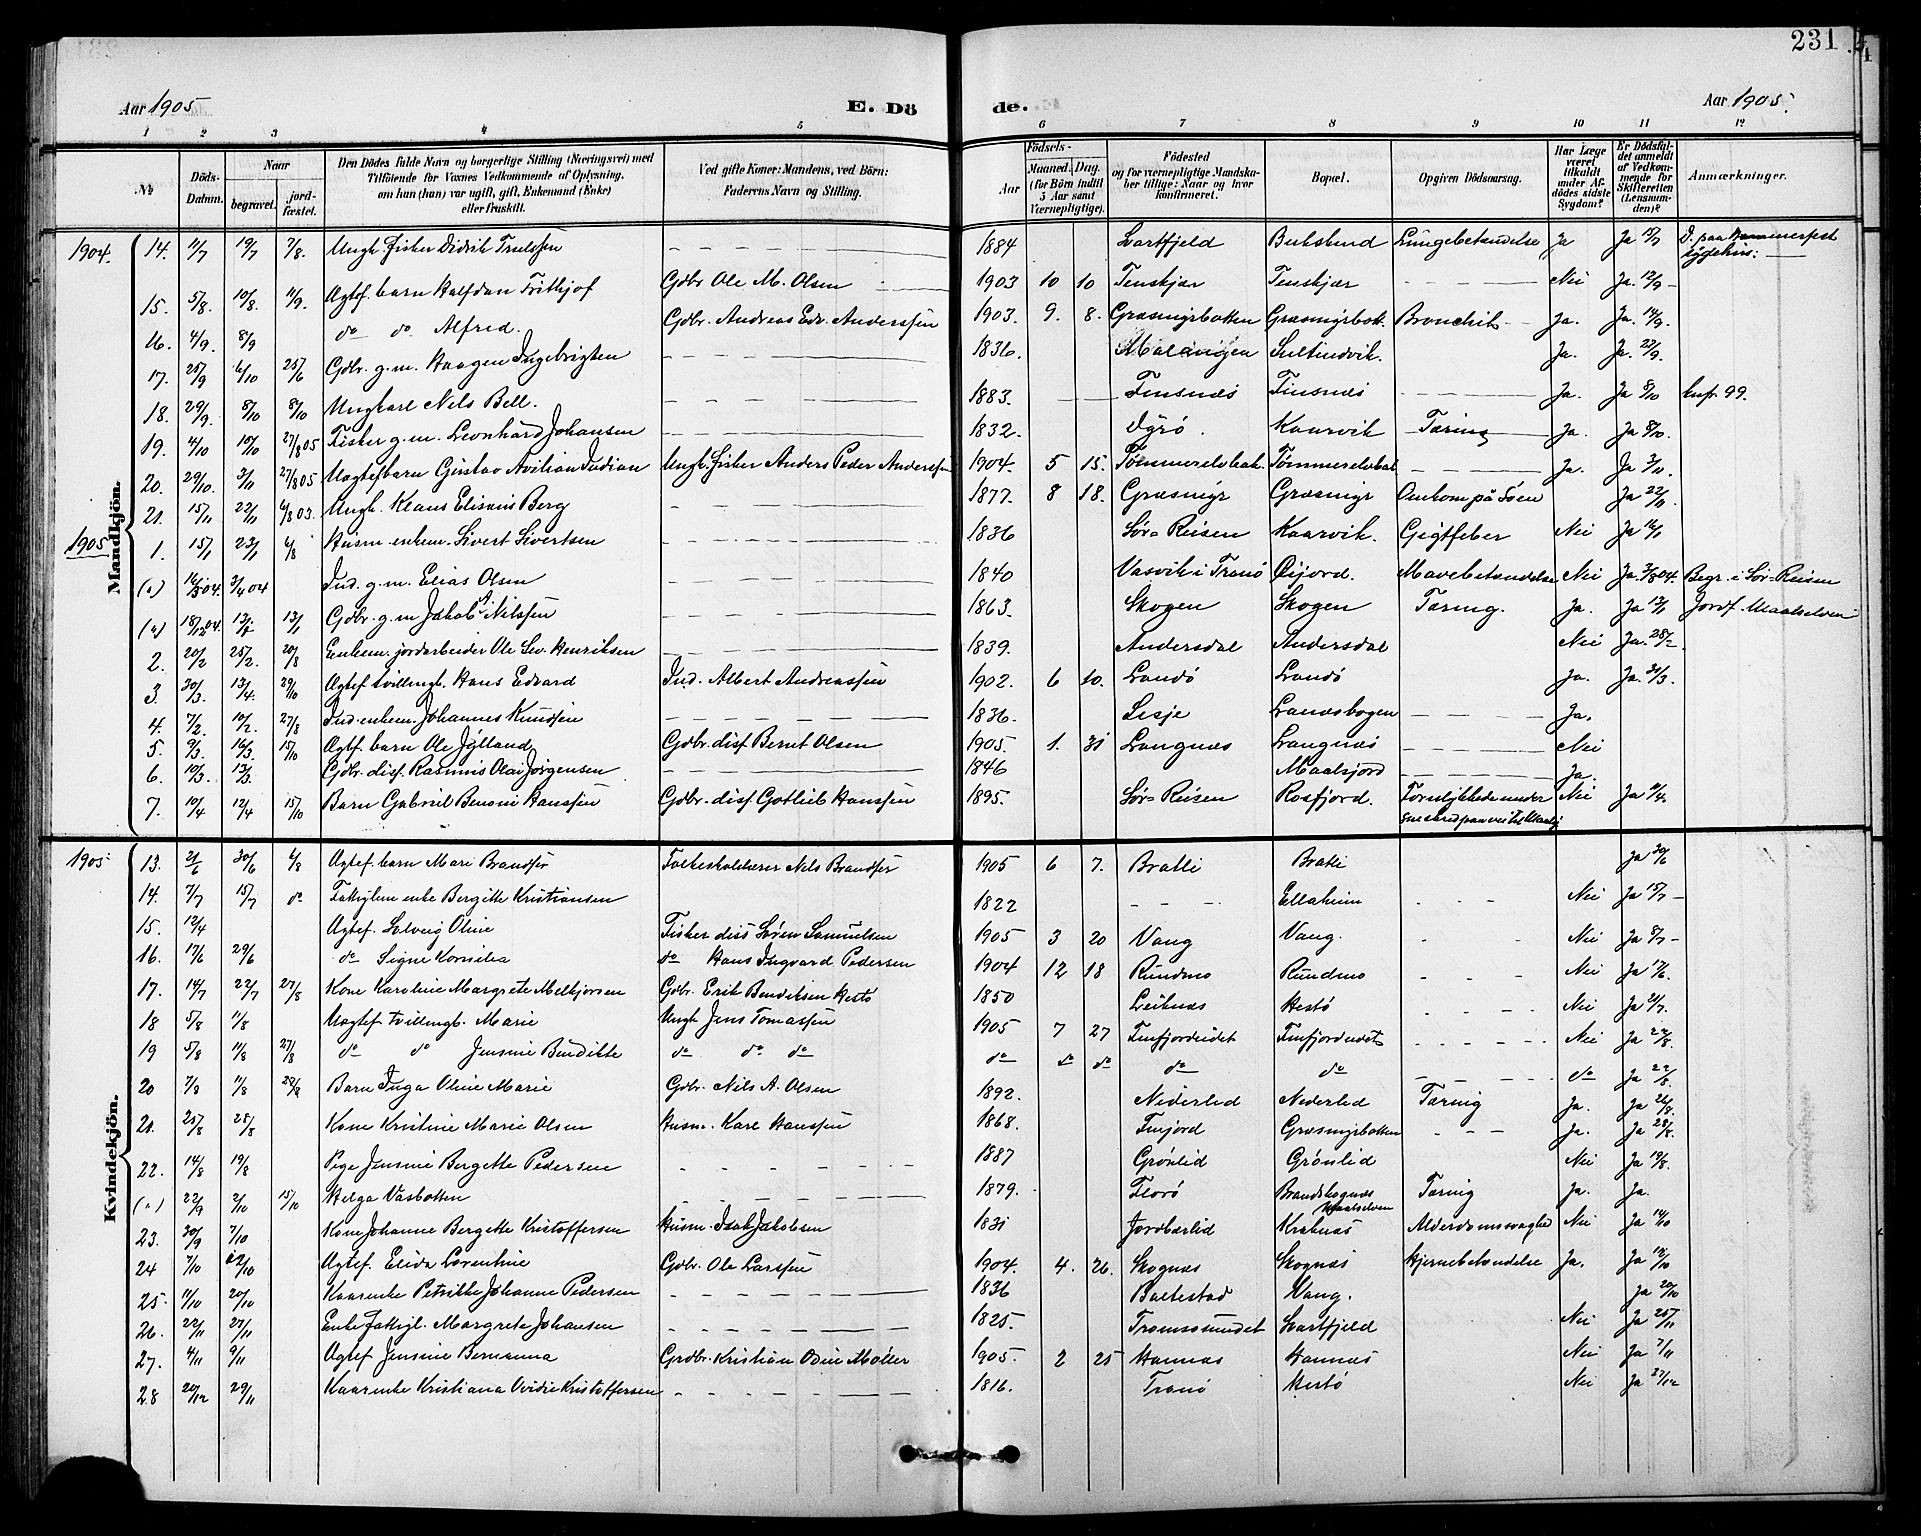 231
Aar 1905
E. Dö
de.
Aar 1905.
1 2 3 4 5 6 7 8 9 10 11 12
No
Döds-Datum.
Naar
begravet.
jord-fæstet.
Den Dödes fulde Navn og borgerlige Stilling (Næringsvei) med
Tilföiende for Voxnes Vedkommende af Oplysning,
om han (hun) var ugift, gift, Enkemand (Enke)
eller fraskilt.
Ved gifte Koner: Mandens, ved Börn:
Faderens Navn og Stilling.
Födsels-
Aar
Maaned. Dag.
(for Börn indtil
5 Aar samt
Værnepligtige).
Födested
og for værnepligtige Mandska-
ber tillige: Naar og hvor
konfirmeret.
Bopæl.
Opgiven Dödsaarsag.
Har Læge
været
tilkaldt
under Af-
dödes sidste
Sygdom?
Er Dödsfal-
det anmeldt
af Vedkom-
mende for
Skifteretten
(Lensman-
den)?
Anmærkninger.
Mandkjön.
1904. 14. 11/7 19/7 7/8. Ungk. fisker Didrik Trulssen — 1884 Lartfjeld Bukskind Lungebetændelse Ja Ja 15/7 D. paa Hammerfest sygehus.
15. 5/8. 10/8. 11/9. Ægtef. barn Halfdan Frithjof Gdbr. Ole M. Olsen 1903 10 10 Tenskjær Tenskjær — Nei Ja. 12/9
16. 4/9. 8/9 do do Alfred. Gdbr. Andreas Edv. Anderssen 1903. 9. 8. Græsmyrbotten Græsmyrbot. Bronchit Ja. Ja. 14/9.
17. 25/9 6/10 25/6 Gdbr. g.m. Haagen Ingebrigten — 1836. Malangen Sultindvik. Ja. Ja. 22/9.
18. 29/9. 8/10 8/10 Ungkarl Nils Bell. — 1883. Finsnæs Finsnæs — Ja. Ja 8/10 Konf. 99.
19. 4/10 10/10 27/8 05 Fisker g.m. Leonhard Johansen — 1832. Dyrø. Kaarvik Tæring Ja. Ja 8/10.
20. 29/10. 3/11 27/8 05 Uægtef barn Gustav Avilian Indian Ungk. fisker Anders Peder Anderssen 1904. 5 15. Tømmerelvbak Tømmerelvbak — Ja. Ja 3/11.
21. 15/11 22/11 6/8 03. Ungk. Klaus Elisæus Berg 1877. 8 18. Græsmyr Græsmyr Omkom på Søen Ja 22/11
1905 1. 15/1 23/1 6/8 Husm. enkem. Sivert Sivertsen — 1836 Sør-Reisen Kaarvik. Gigtfeber Nei Ja 16/1
(a) 16/3 04. 3/4 04 Ind. g.m. Elias Olsen — 1840 Vasvik i Tranø Øijord. Mavebetændelse Nei Ja. 3/8 04. Begr. i Sør-Reisen
(a) 18/12 04. 13/1 13/1 Gdbr. g.m Jakob A. Nilssen — 1863. Skogen Skogen Tæring. Ja. Ja 12/1 Jordf. Maalselven
2. 20/2 25/2. 20/8 Enkem. jordarbeider Ole Sev. Henriksen — 1839. Andersdal Andersdal Nei Ja. 28/2.
3. 30/3. 13/4. 29/10 Ægtef tvillingb. Hans Edvard Ind. Albert Andreassen 1902. 6 10. Landø Landø Ja. Ja 31/3.
4. 7/2. 10/2. 27/8 Ind. enkem. Johannes Knudsen — 1836. Lesje Landsbogen — Ja.
5. 9/3. 16/3. 15/10 Ægtf. barn Ole Jylland Gdbr. disf. Bernt Olsen 1905. 1. 31 Langnæs Langnæs — Nei
6. 10/3. 13/3. Gdbr. disf. Rasmus Olai Jørgensen — 1846 Maalsjord — Ja.
7. 10/4 12/4 15/10 Barn Gabriel Benoni Hanssen Gdbr. disf Gotlieb Hanssen 1895. Sør-Reisen Rosfjord. Forulykkede under sneskred paa vei til Nei Ja 11/4.
Kvindekjön.
1905: 13. 21/6 30/6 6/8 Ægtef barn Mari Brandser Folkeskolelærer Nils Brandser 1905 6 7. Bratli Bratli Ja 30/6
14. 7/7 15/7 do Fattiglem enke Bergitte Kristiansen 1822 — Ellaheim — Nei Ja 15/7
15. 12/4 Ægtef. Solveig Oline Fisker diss Søren Samuelsen 1905 3 20 Vang Vang. — Nei Ja 8/7
16. 17/6 29/6 do Signe Kornelia do Hans Ingvard Pedersen 1904 12 18 Rundmo Rundmo — Nei Ja 17/6.
17. 14/7 22/7 27/8 Kone Karoline Margrete Melkjorsen Gdbr. Erik Bendiksen Hestø 1850 Leiknæs Hestø — Nei Ja 21/7.
18 5/8 11/8 Uægtef tvillingb. Marie Ungk Jens Tomassen 1905 7 27 Finfjordeidet Finfjordeidet — Nei Ja 22/8.
19 5/8 11/8 27/8 do do Jensine Bendikte do do do do do do do do — do Ja 22/8.
20 7/8 11/8 27/8 Barn Inga Oline Marie Gdbr. Nils A. Olsen 1892. Nederlid Nederlid Tæring Ja. Ja 26/8.
21. 25/8 25/8 Kone Kristine Marie Olsen Husm. Karl Hanssen 1868. Finjord Græsmyrbotten — Ja. Ja 28/8.
22. 14/8 19/8 Pige Jensine Bergette Pedersen — 1887 Grønlid Grønlid Nei Ja 19/8.
(a) 22/9 2/10 15/10 Helga Vasbotten — 1879. Florø Brandskognes Maalselven Tæring Ja. Ja.
23. 30/9 7/10 Kone Johanne Bergette Kristoffersen Husm. Isak Jakobsen 1831 Jordbærlid Kraknæs Alderdomssvaghed Nei Ja 14/10
24 7/10 12/10 Ægtef. Elida Lorentine Gdbr. Ole Larssen 1904. 4. 26. Skognæs Skognæs Hjernebetændelse Ja. Ja 12/10
25. 11/10 20/10 Kaarenke Petrikke Johanne Pedersen — 1836 Baltestad Vang. Ja 20/10
26. 22/11 27/11 Enke Fattigl. Margrete Johansen — 1825. Tromsøsundet Lartfjeld Nei Ja 25/11
27. 4/11 9/11 Ægtef Jensine Bernanna Grdbr. Kristian Odin Møller 1905. 2 25 Hannæs Hannæs Nei Ja 7/11
28 20/12 29/11 Kaarenke Kristiana Ovidie Kristoffersen — 1816. Tranø Hestø Nei Ja 27/12